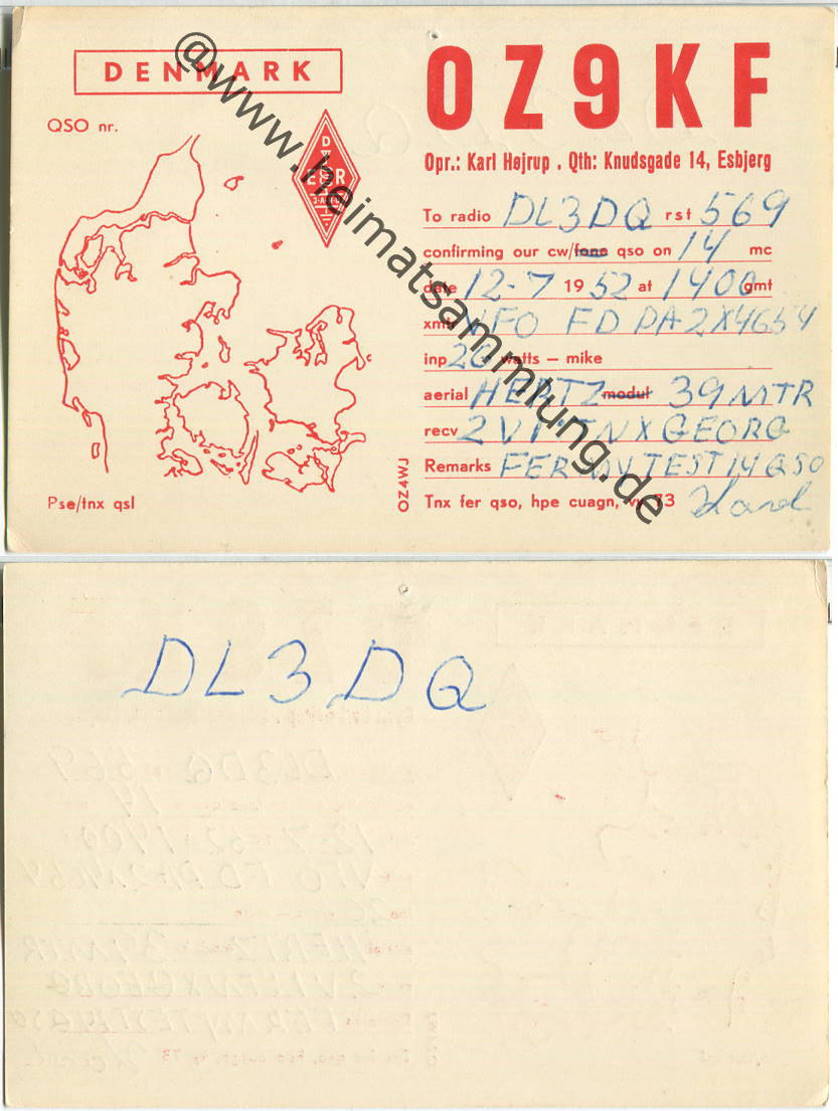 DENMARK
OZ9KF
QSO nr.
Opr.: Karl Højrup . Qth: Knudsgade 14, Esbjerg
To radio DL3DQ rst 569
confirming our cw/fone qso on 14 mc
date 12-7 1952 at 1400 gmt
xmtr VFO FD PA 2X4654
inp 20 watts — mike
aerial HERTZ modul 39 MTR
recv 2V1 TNX GEORG
Remarks FER TEST 14 QSO
Pse/tnx qsl
OZ4WJ
Tnx fer qso, hpe cuagn, vy 73
@www.heimatsammlung.de
DL3DQ